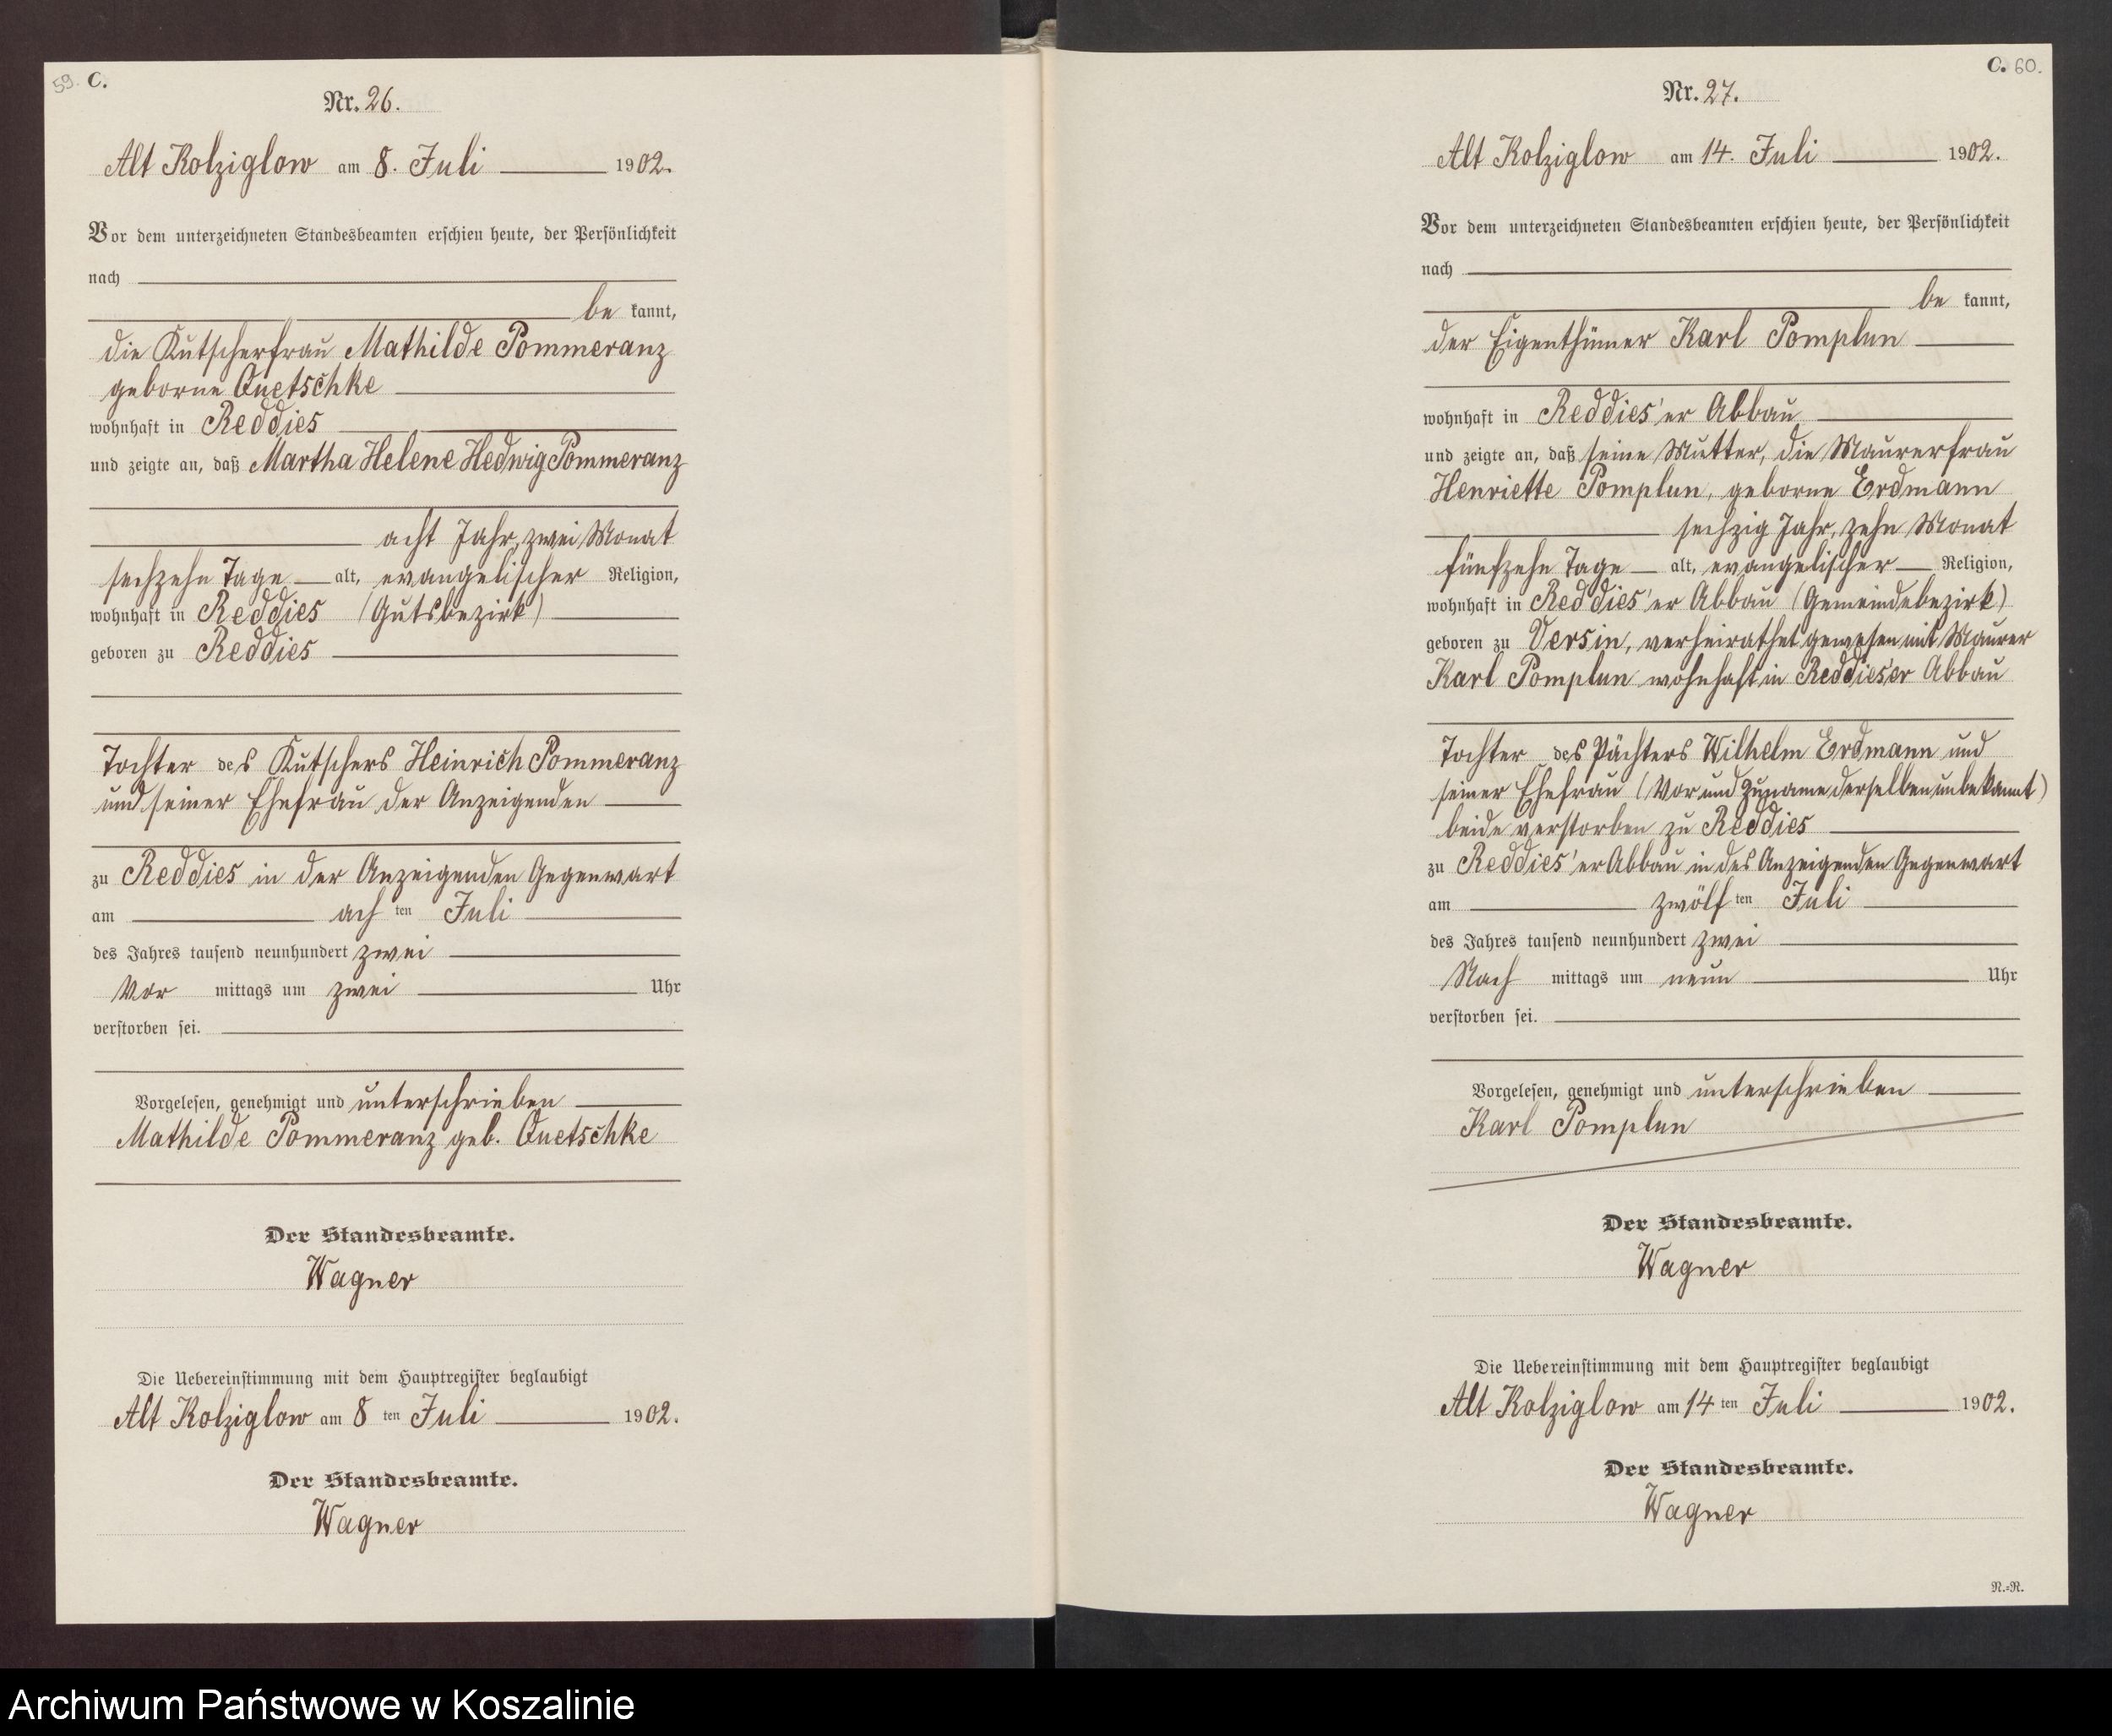 59. C.
Nr. 26.
Alt Kolziglow am 8. Juli 1902.
Vor dem unterzeichneten Standesbeamten erschien heute, der Persönlichkeit
nach
be kannt,
die Kutscherfrau Mathilde Pommeranz
geborne Quetschke
wohnhaft in Reddies
und zeigte an, daß Martha Helene Hedwig Pommeranz
acht Jahr, zwei Monat
sechzehn Tage alt, evangelischer Religion,
wohnhaft in Reddies (Gutsbezirk)
geboren zu Reddies
Tochter des Kutschers Heinrich Pommeranz
und seiner Ehefrau der Anzeigenden
zu Reddies in der Anzeigenden Gegenwart
am ach ten Juli
des Jahres tausend neunhundert zwei
Vor mittags um zwei Uhr
verstorben sei.
Vorgelesen, genehmigt und unterschrieben
Mathilde Pommeranz geb. Quetschke
Der Standesbeamte.
Wagner
Die Uebereinstimmung mit dem Hauptregister beglaubigt
Alt Kolziglow am 8 ten Juli 1902.
Der Standesbeamte.
Wagner
C. 60.
Nr. 27.
Alt Kolziglow am 14. Juli 1902.
Vor dem unterzeichneten Standesbeamten erschien heute, der Persönlichkeit
nach
be kannt,
der Eigenthümer Karl Pomplun
wohnhaft in Reddies'er Abbau
und zeigte an, daß seine Mutter, die Maurerfrau
Henriette Pomplun, geborne Erdmann
sechzig Jahr, zehn Monat
fünfzehn Tage alt, evangelischer Religion,
wohnhaft in Reddies'er Abbau (Gemeindebezirk)
geboren zu Versin, verheirathet gewesen mit Maurer
Karl Pomplun wohnhaft in Reddies'er Abbau
Tochter des Pächters Wilhelm Erdmann und
seiner Ehefrau (Vor und Zuname derselben unbekannt)
beide verstorben zu Reddies
zu Reddies'er Abbau in des Anzeigenden Gegenwart
am zwölf ten Juli
des Jahres tausend neunhundert zwei
Nach mittags um neun Uhr
verstorben sei.
Vorgelesen, genehmigt und unterschrieben
Karl Pomplun
Der Standesbeamte.
Wagner
Die Uebereinstimmung mit dem Hauptregister beglaubigt
Alt Kolziglow am 14 ten Juli 1902.
Der Standesbeamte.
Wagner
N.=N.
Archiwum Państwowe w Koszalinie